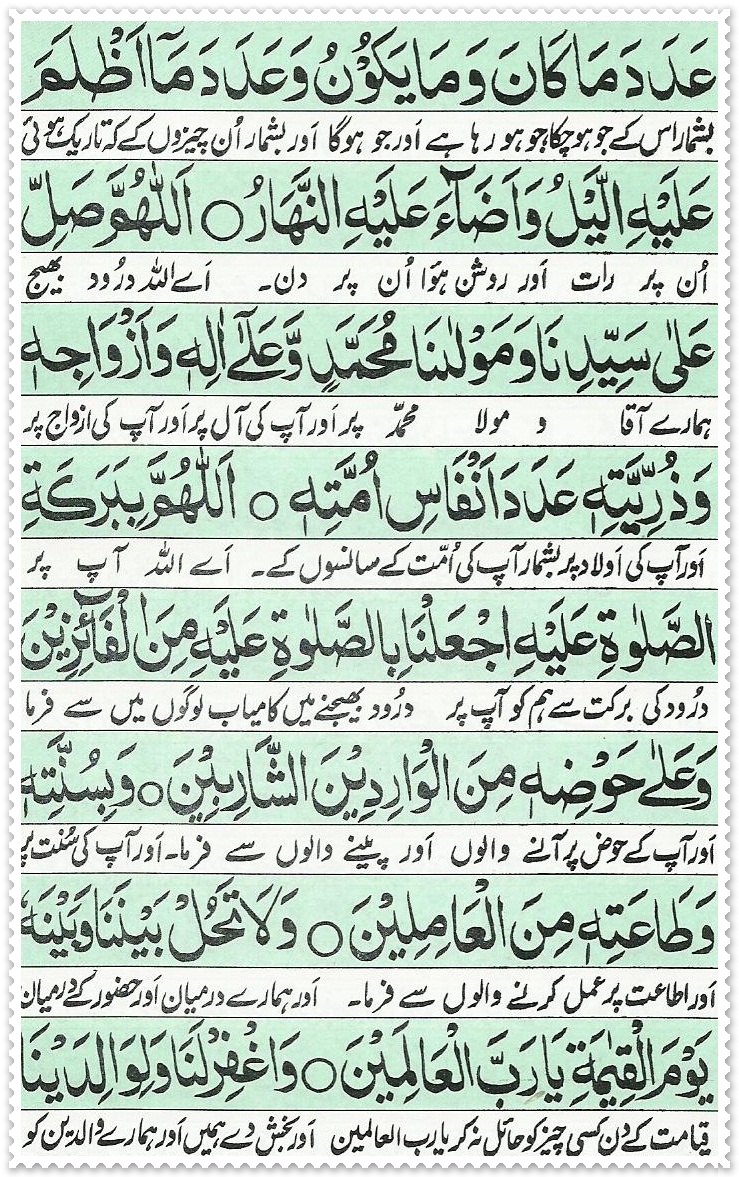 عَدَدَ مَا كَانَ وَمَا يَكُوْنُ وَعَدَدَ مَآ اَظْلَمَ
بشمار اس کے جو ہو چکا جو ہو رہا ہے اَور جو ہوگا اَور بشمار اُن چیزوں کے کہ تاریک ہوئی
عَلَيْهِ الَّيْلُ وَاَضَآءَ عَلَيْهِ النَّهَارُ ○ اَللّٰهُمَّ صَلِّ
اُن پر رات اَور روشن ہوَا اُن پر دن۔ اَے اللہ درُود بھیج
عَلٰى سَيِّدِنَا وَمَوْلٰىنَا مُحَمَّدٍ وَّعَلٰٓى اٰلِهٖ وَاَزْوَاجِهٖ
ہمارے آقا و مولا محمدؐ پر اَور آپ کی آل پر اَور آپ کی ازواج پر
وَذُرِّيَّتِهٖ عَدَدَ اَنْفَاسِ اُمَّتِهٖ ○ اَللّٰهُمَّ بِبَرَكَةِ
اَور آپ کی اَولاد پر بشمار آپ کی اُمّت کے سانسوں کے۔ اَے اللہ آپ پر
الصَّلٰوةِ عَلَيْهِ اجْعَلْنَا بِالصَّلٰوةِ عَلَيْهِ مِنَ الْفَآئِزِيْنَ
درُود کی برکت سے ہم کو آپ پر درُود بھیجنے میں کامیاب لوگوں میں سے فرما
وَعَلٰى حَوْضِهٖ مِنَ الْوَارِدِيْنَ الشَّارِبِيْنَ ○ وَبِسُنَّتِهٖ
اَور آپ کے حوض پر آنے والوں اَور پینے والوں سے فرما۔ اَور آپ کی سُنّت پر
وَطَاعَتِهٖ مِنَ الْعَامِلِيْنَ ○ وَلَا تَحُلْ بَيْنَنَا وَبَيْنَهٗ
اَور اطاعت پر عمل کرنے والوں سے فرما۔ اَور ہمارے درمیان اَور حضورؐ کے درمیان
يَوْمَ الْقِيٰمَةِ يَا رَبَّ الْعَالَمِيْنَ ○ وَاغْفِرْ لَنَا وَلِوَالِدَيْنَا
قیامت کے دن کسی چیز کو حائل نہ کر یا رب العالمین اَور بخش دے ہمیں اَور ہمارے والدین کو